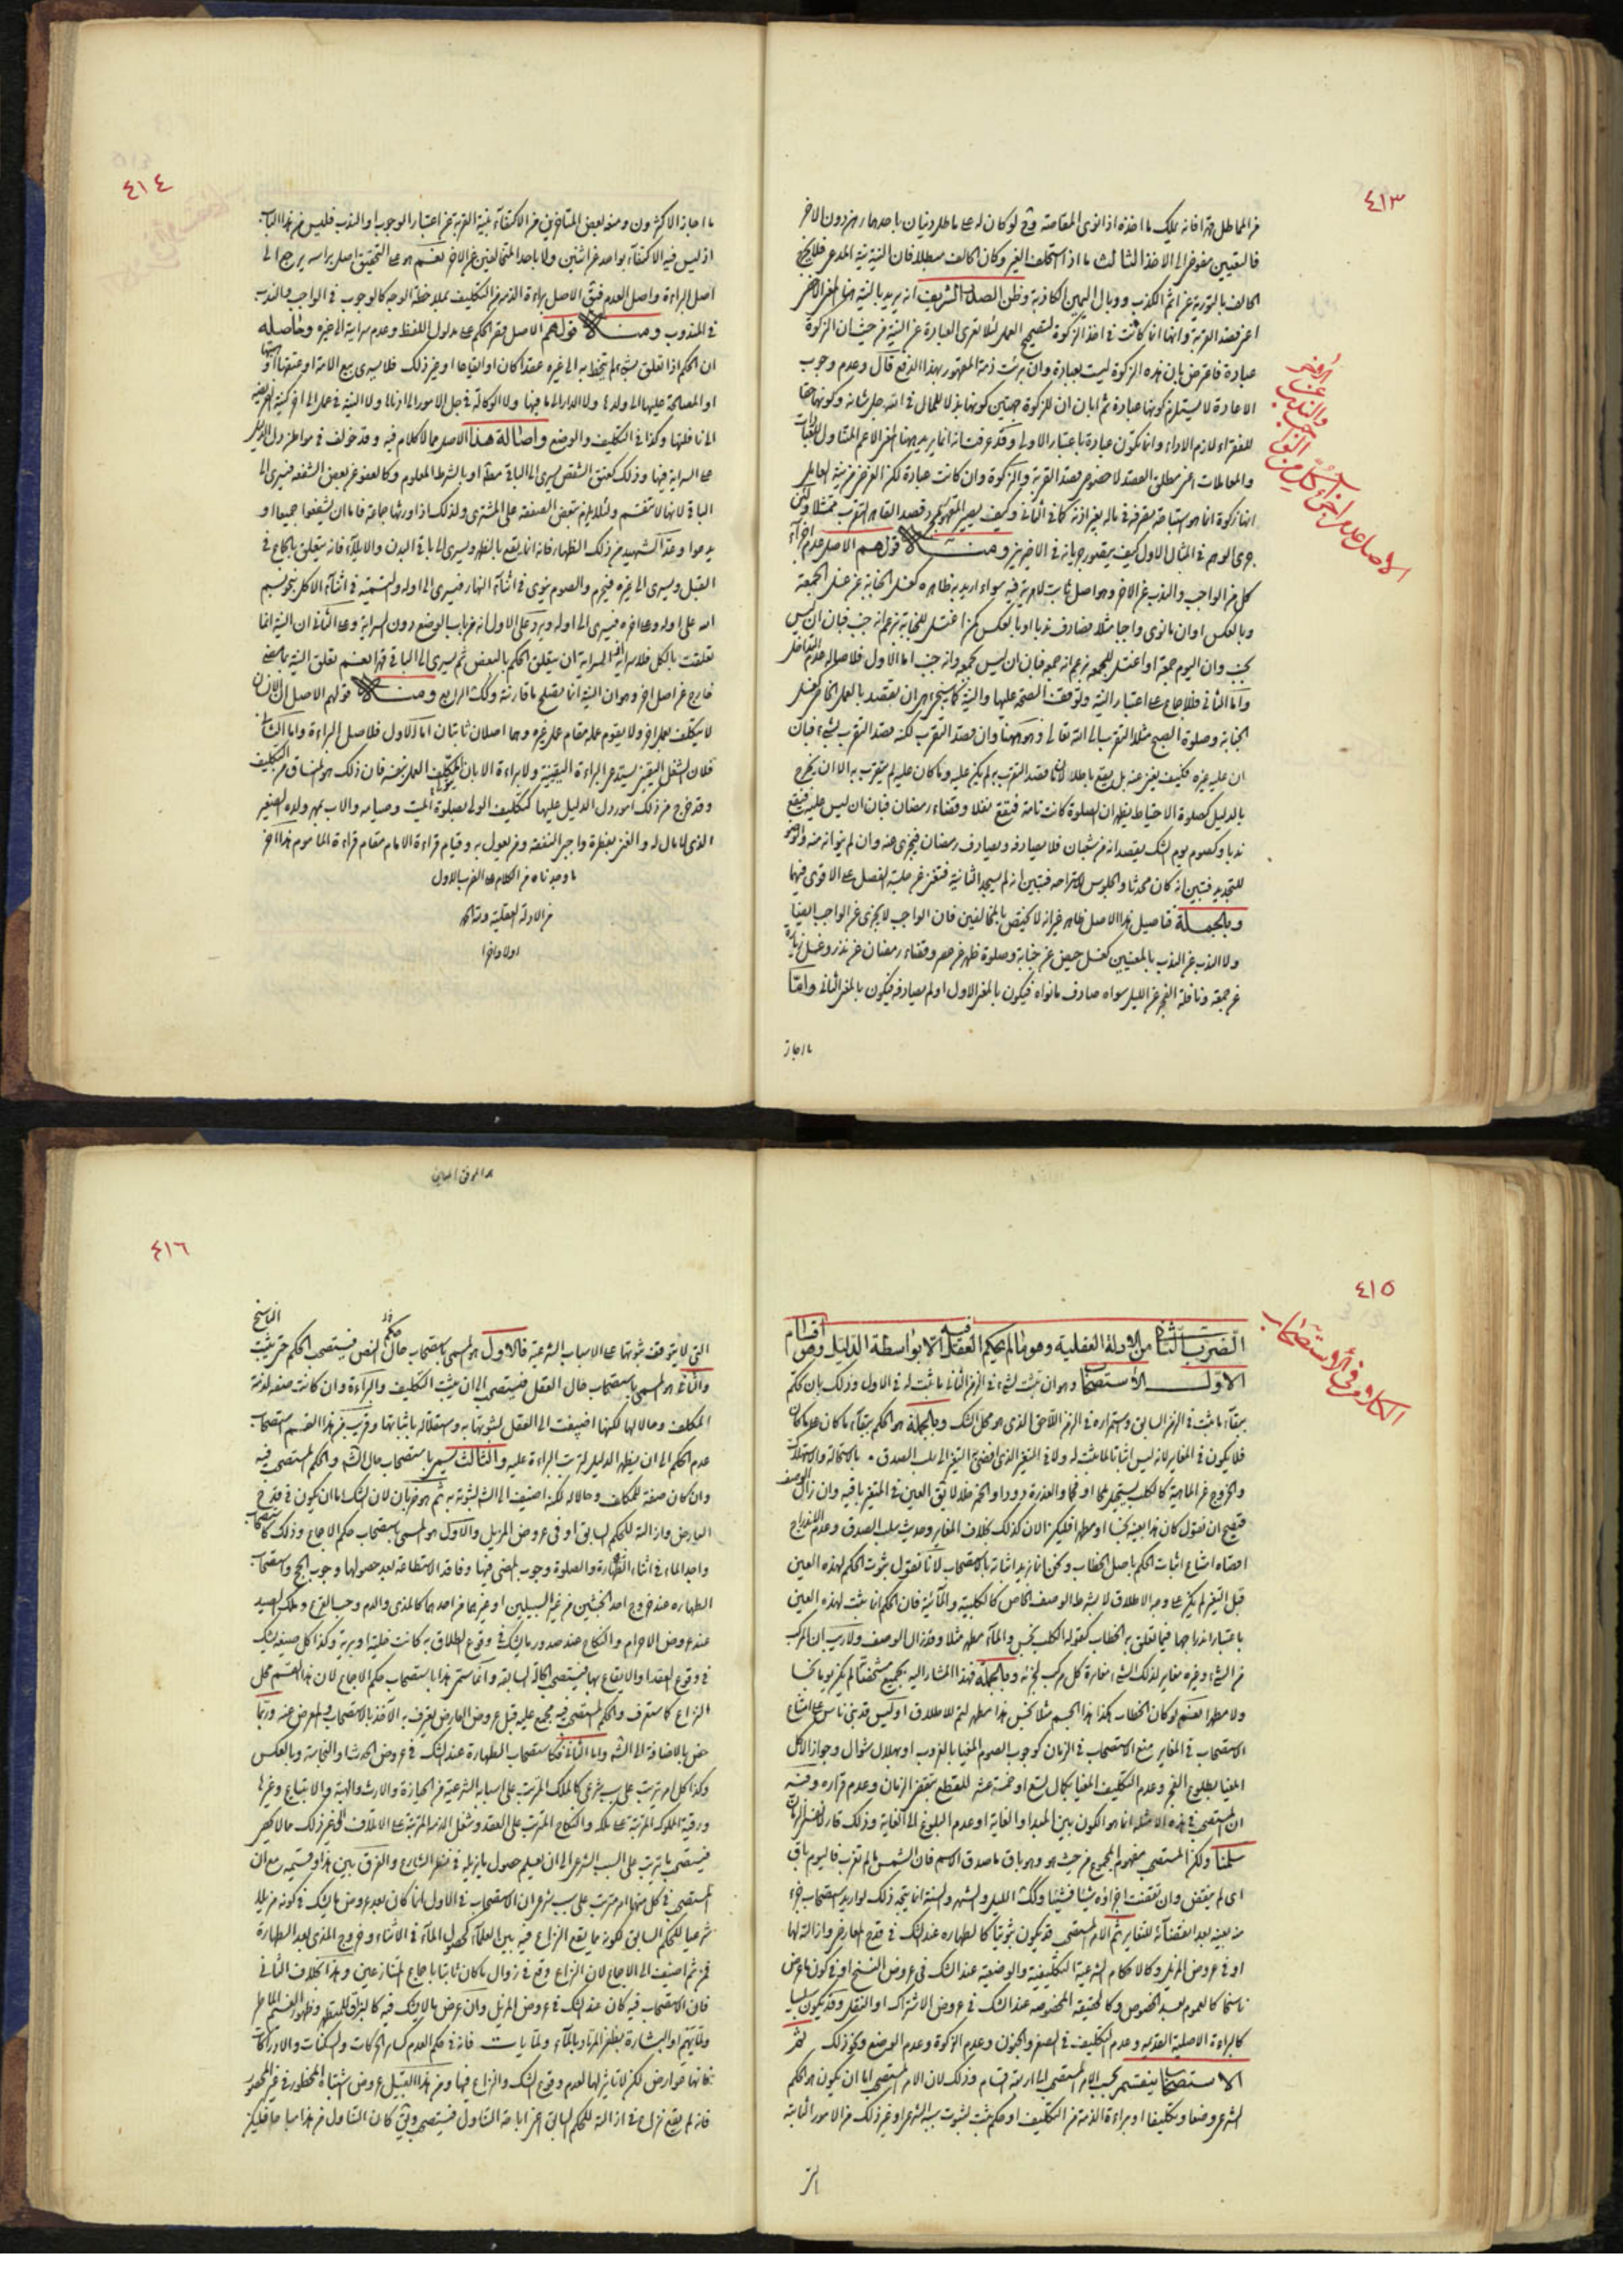 ٤١٣
من المماطل قهرا فانه يملك ما اخذه اذا نوى المقاصة وح لو كان له على ماطل دينان باحدهما رهن دون الاخر
فالتعيين مفوض الى الاخذ الثالث ما اذا استحلف الغير وكان الحالف مبطلا فان النية نية المدعى فلا يخرج
الحالف بالتورية عن اثم الكذب ووبال اليمين الكاذبة وظن الصدر الشريف انه يريد بالنية هنا المعنى الاخص
اعنى قصد القربة وانها انما كانت فى اخذ الزكوة لتصحيح العمل لئلا تعرى العبادة عن النية من حيث ان الزكوة
عبادة فاعترض بان هذه الزكوة ليست بعبادة وان برئت ذمة المقهور بهذا الدفع قال وعدم وجوب
الاعادة لا يستلزم كونها عبادة ثم ابان ان للزكوة جهتين كونها بذلا للمال فى الله جل شانه وكونها حقا
للفقراء لازم الاداء وانما تكون عبادة باعتبار الاولى وقد عرفت انه انما يريد هنا المعنى الاعم المتناول للعبادات
والمعاملات اعنى مطلق القصد لا خصوص قصد القربة والزكوة وان كانت عبادة لكن الغرض من نية العامل
انها زكوة انما هو استباحة تصرفه فى ماله بغير اذنه كما فى الثانى وكيف يصير المقهور بمجرد قصد القاهر التقرب ممتثلا ولئن
جرى الوهم فى المثال الاول كيف يتصور جريانه فى الاخيرين ومنها قولهم الاصل عدم اجزاء
كل من الواجب والندب عن الاخر وهو اصل ثابت لا مرية فيه سواء اريد به ظاهره كغسل الجنابة عن غسل الجمعة
وبالعكس او ان ما نوى واجبا مثلا فصادف ندبا او بالعكس كمن اغتسل للجنابة بزعم انه جنب فبان ان ليس
بجنب وان اليوم جمعة او اغتسل للجمعة بزعم انه جمعة فبان ان ليس بجمعة وانه جنب اما الاول فلاصالة عدم التداخل
واما الثانى فللاجماع على اعتبار النية وتوقف الصحة عليها والنية كما سيجىء هى ان يقصد بالعمل الخاص كغسل
الجنابة وصلوة الصبح مثلا التقرب الى الله تعالى وهو هيهنا وان قصد التقرب لكنه قصد التقرب بشىء فبان
ان عليه غيره فكيف يغنى عنه بل يقع باطلا لانه انما قصد التقرب بما لم يكن عليه وما كان عليه لم يتقرب به الا ان يخرج
بالدليل كصلوة الاحتياط يظهر ان الصلوة كانت تامة فيقع نفلا وقضاء رمضان فبان ان ليس عليه فيقع
ندبا وكصوم يوم الشك بقصد انه من شعبان فلا يصادفه ويصادف رمضان فيجزى عنه وان لم ينو انه منه والوضوء
للتجديد فتبين انه كان محدثا والجلوس للاستراحة فتبين انه لم يسجد الثانية فتغنى عن جلسة الفصل على الاقوى فيهما
وبالجملة فتاصيل هذا الاصل ظاهر غير انه لا يختص بالمخالفين فان الواجب لا يجزى عن الواجب ايضا
ولا الندب عن الندب بالمعنيين كغسل حيض عن جنابة وصلوة ظهر عن عصر وقضاء رمضان عن نذر وغسل زيارة
عن جمعة ونافلة الفجر عن الليل سواء صادف ما نواه فيكون بالمعنى الاول او لم يصادفه فيكون بالمعنى الثانى واما
ما اجاز
الاصل عدم اجزاء كل من الواجب والندب عن الاخر
٤١٤
ما اجازه الاكثرون ومنعه بعض المتاخرين من الاكتفاء بنية القربة عن اعتبار الوجوب او الندب فليس من هذا الباب
اذ ليس فيه الاكتفاء بواحد عن اثنين ولا باحد المتخالفين عن الاخر نعم هو على التحقيق اصل براسه يرجع الى
اصل البراءة واصل العدم فيق الاصل براءة الذمة من التكليف بملاحظة الوجه كالوجوب فى الواجب والندب
فى المندوب ومنها قولهم الاصل قصر الحكم على مدلول اللفظ وعدم سرايته الى غيره وحاصله
ان الحكم اذا تعلق بشىء لم يتخط به الى غيره عقدا كان او ايقاعا او غير ذلك فلا يسرى بيع الامة او عتقها او هبتها
او المصالحة عليها الى ولدها ولا الدار الى ما فيها ولا الوكالة فى جل الامور الى اذنالها ولا النية فى عمل الى اخر كنية الفريضة
الى نافلتها وكذا فى التكليف والوضع واصالة هذا الاصل مما لا كلام فيه وقد خولف فى مواطن دل الدليل
على السراية فيها وذلك كعتق الشقص يسرى الى الباقى مطلقا او بالشرط المعلوم وكالعفو عن بعض الشفعة فيسرى الى
الباقى لانها لا تنقسم ولئلا يلزم تبعيض الصفقة على المشترى ولذلك اذا ورثها جماعة فاما ان يشفعوا جميعا او
يدعوا وعد الشهيد من ذلك الظهار فانه انما يقع بالظهر ويسرى الى باقى البدن والايلاء فانه يتعلق بالجماع فى
القبل ويسرى الى غيره فيحرم والصوم ينوى فى اثناء النهار فيسرى الى اوله والتسمية فى اثناء الاكل بنحو بسم
الله على اوله وعلى اخره فيسرى الى اوله ويرد على الاول انه من باب الوضع دون السراية وعلى الثانى ان النية انما
تعلقت بالكل فلا سراية انما السراية ان يتعلق الحكم بالبعض ثم يسرى الى الباقى قهرا نعم تعلق النية بما مضى
خارج عن اصل اخر وهو ان النية انما تصلح ما قارنته وكك الرابع ومنها قولهم الاصل ان الانسان
لا يكلف بعمل غيره ولا يقوم عمله مقام عمل غيره وهما اصلان ثابتان اما الاول فلاصل البراءة واما الثانى
فلان الشغل اليقينى يستدعى البراءة اليقينية ولا براءة الا بان يلى المكلف العمل بنفسه فان ذلك هو المنساق من التكليف
وقد خرج من ذلك امور دل الدليل عليها كتكليف الولى بصلوة الميت وصيامه والاب بمهر ولده الصغير
الذى لا مال له والغنى بفطرة واجبى النفقة ومن يعول به وقيام قراءة الامام مقام قراءة الماموم هذا اخر
ما وجدناه من الكلام على الضرب الاول
من الادلة العقلية ولله الحمد
اولا واخرا
٤١٥
الضرب الثانى من الادلة العقلية وهو ما لم يحكم فيه العقل الا بواسطة الدليل وهى اقسام
الاول الاستصحاب وهو ان يثبت لشىء فى الزمن الثانى ما ثبت له فى الاول وذلك بان تحكم
ببقاء ما ثبت فى الزمن السابق واستمراره فى الزمن اللاحق الذى هو محل الشك وبالجملة هو الحكم ببقاء ما كان على ما كان
فلا يكون فى المغاير لانه ليس اثباتا لما ثبت له ولا فى المتغير الذى افضى به التغير الى سلب الصدق بالاستحالة والاستهلاك
والخروج عن الماهية كالكلب يستحيل ملحا او فحما والعذرة دودا والخمر خلا لا يق العين فى المتغير باقية وان زال الوصف
فيصح ان نقول كان هذا بعينه نجسا او مطهرا فليكن الان كذلك بخلاف المغاير وحديث سلب الصدق وعدم الاندراج
اقصاه امتناع اثبات الحكم باصل الخطاب ونحن انما نريد اثباته بالاستصحاب لانا نقول ثبوت الحكم لهذه العين
قبل التغير لم يكن على وجه الاطلاق لا بشرط الوصف الخاص كالكلبية والمائية فان الحكم انما يثبت لهذه العين
باعتبار اندراجها فيما تعلق به الخطاب كقوله الكلب نجس والماء مطهر مثلا وقد زال الوصف ولا ريب ان المركب
من الشىء وغيره مغاير لذلك الشىء مغايرة كل مركب لجزئه وبالجملة فهذا المشار اليه بجميع مشخصاته لم يكن يوما نجسا
ولا مطهرا نعم لو كان الخطاب هكذا هذا الجسم مثلا نجس هذا مطهر لتم للاطلاق او ليس قد بنى ناس على امتناع
الاستصحاب فى المغاير منع الاستصحاب فى الزمان كوجوب الصوم المغيا بالغروب او بهلال شوال وجواز الاكل
المغيا بطلوع الفجر وعدم التكليف المغيا بكمال تسع او خمسة عشر للقطع بتقضى الزمان وعدم قراره وفيه
ان المستصحب فى هذه الامثلة انما هو الكون بين المبدا والغاية او عدم البلوغ الى الغاية وذلك قار كنفس الزمان
سلمنا ولكن المستصحب مفهوم المجموع من حيث هو وهو باق ما صدق الاسم فان الشمس ما لم تغرب فاليوم باق
اى لم ينقض وان تقضت اجزاؤه شيئا فشيئا وكك الليل والشهر والسنة انما يتجه ذلك لو اريد استصحاب جزء
منه بعينه بعد انقضائه للتغاير ثم الامر المستصحب قد يكون ثبوتيا كالطهارة عند الشك فى قدح العارض وازالته لها
او فى عروض المزيل وكالاحكام الشرعية التكليفية والوضعية عند الشك فى عروض النسخ او فى كون ما عرض
ناسخا كالعموم بعد الخصوص وكالحقيقة المخصوصة عند الشك فى عروض الاشتراك او النقل وقد يكون سلبيا
كالبراءة الاصلية القديمة وعدم التكليف فى الصغر والجنون وعدم الزكوة وعدم الوضع ونحو ذلك ثم
الاستصحاب ينقسم بحسب الامر المستصحب الى اربعة اقسام وذلك لان الامر المستصحب اما ان يكون هو الحكم
الشرعى وضعا وتكليفا او براءة الذمة من التكليف او حكم ثبت لثبوت سببه الشرعى او غير ذلك من الامور الثابتة
الكلام فى الاستصحاب
٤١٦
التى لا يتوقف ثبوتها على الاسباب الشرعية فالاول هو المسمى باستصحاب حال النص فيستصحب الحكم حتى يثبت الناسخ
والثانى هو المسمى باستصحاب حال العقل فيستصحب الى ان يثبت التكليف والبراءة وان كانت صفة لذمة
المكلف وحالا لها لكنها اضيفت الى العقل لثبوتها به واستقلاله باثباتها وقريب من هذا القسم استصحاب
عدم الحكم الى ان يظهر الدليل لترتب البراءة عليه والثالث يسمى باستصحاب حال الشرع والحكم المستصحب فيه
وان كان صفة للمكلف وحالا له لكنه اضيف الى الشرع لثبوته به ثم هو ضربان لان الشك اما ان يكون فى قدح
العارض وازالته للحكم السابق او فى عروض المزيل والاول هو المسمى باستصحاب حكم الاجماع وذلك كاستصحاب
واجد الماء فى اثناء الطهارة والصلوة وجوب المضى فيها وفاقد الاستطاعة بعد حصولها وجوب الحج واستصحاب
الطهارة عند خروج احد الخبثين من غير السبيلين او غيرهما من احدهما كالمذى والدم وحب القرع وملك الصيد
عند عروض الاحرام والنكاح عند صدور ما يشك فى وقوع الطلاق به كانت خلية او برية وكذا كل صيغة يشك
فى وقوع العقد او الايقاع بها فيستصحب الحالة السابقة وانما سمى هذا باستصحاب حكم الاجماع لان هذا القسم محل
النزاع كما ستعرف والحكم المستصحب فيه مجمع عليه قبل عروض العارض ليعرف به الآخذ بالاستصحاب والمعرض عنه وربما
خص بالاضافة الى الشرع واما الثانى فكاستصحاب الطهارة عند الشك فى عروض الحدث او النجاسة وبالعكس
وكذا كل امر ترتب على سبب شرعى كالملك المترتب على اسبابه الشرعية من الحيازة والارث والهبة والابتياع وغيرها
ورقية المملوك المترتبة على ملكه والنكاح المترتب على العقد وشغل الذمة المترتب على الاتلاف الى غير ذلك مما لا يحصر
فيستصحب ما ترتب على السبب الشرعى الى ان يعلم حصول ما يزيله فى نظر الشارع والفرق بين هذا وقسيمه مع ان
المستصحب فى كل منهما امر مترتب على سبب شرعى ان الاستصحاب فى الاول لما كان بعد عروض ما يشك فى كونه مزيلا
شرعيا للحكم السابق لكونه مما يقع النزاع فيه بين العلماء كحصول الماء فى الاثناء وخروج المذى بعد الطهارة
فمن ثم اضيف الى الاجماع لان النزاع وقع فى زوال ما كان ثابتا باجماع المتنازعين وهذا بخلاف الثانى
فان الاستصحاب فيه كان عند الشك فى عروض المزيل وان عرض ما لا يشك فيه كالبزاق للمتطهر وظهور الغيم الماطر
وللمتيمم او البشارة بظفر المرتاد بالماء ولما يات فانه فى حكم العدم كسائر الحركات والسكنات والادراكات
فانها عوارض لكن لا تاثير لها لعدم وقوع الشك والنزاع فيها ومن هذا القبيل عروض اشتباه المحظور فى غير المحصور
فانه لم يقع نزاع فى ازالته للحكم السابق اعنى اباحة التناول فيستصحب ويق كان التناول من هذا مباحا فليكن